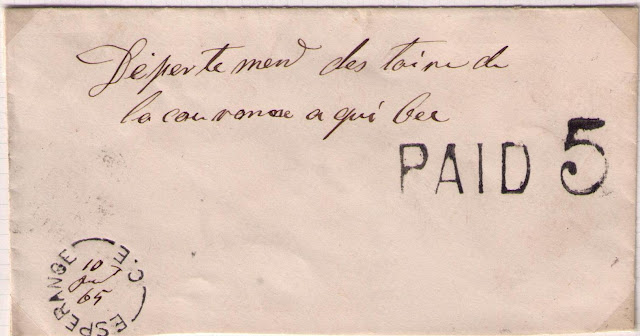 Département des taire de
la couronne a qui bec
PAID 5
ESPERANCE C.E
10
65